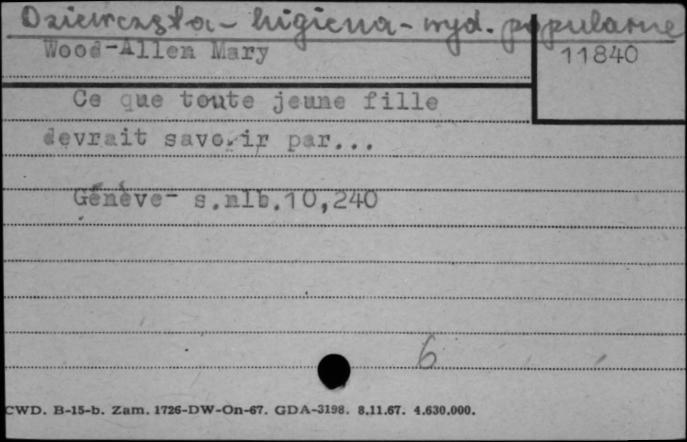 Dziewczęta - higiena - wyd. popularne
Wood-Allen Mary
11840
Ce que toute jeune fille
devrait savoir par...
Génève- s.nlb.10,240
6
CWD. B-15-b. Zam. 1726-DW-On-67. GDA-3198. 8.11.67. 4.630.000.